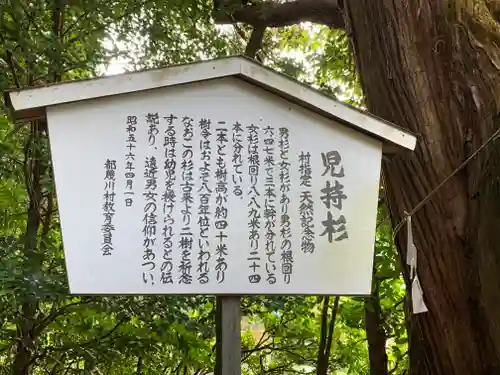 児持杉
村指定 天然記念物
男杉と女杉があり男杉の根回り
六四七米で三本に幹が分れ
女杉は根回り八八九米あり二十四
本に分れている。
二本とも樹高が約四十米あり
樹令はおよそ八百年位といわれる
なおこの杉は古来より二樹を祈念
する時は幼児を授けられるとの伝
説あり、遠近男女の信仰があつい、
昭和五十六年四月一日
都幾川村教育委員会